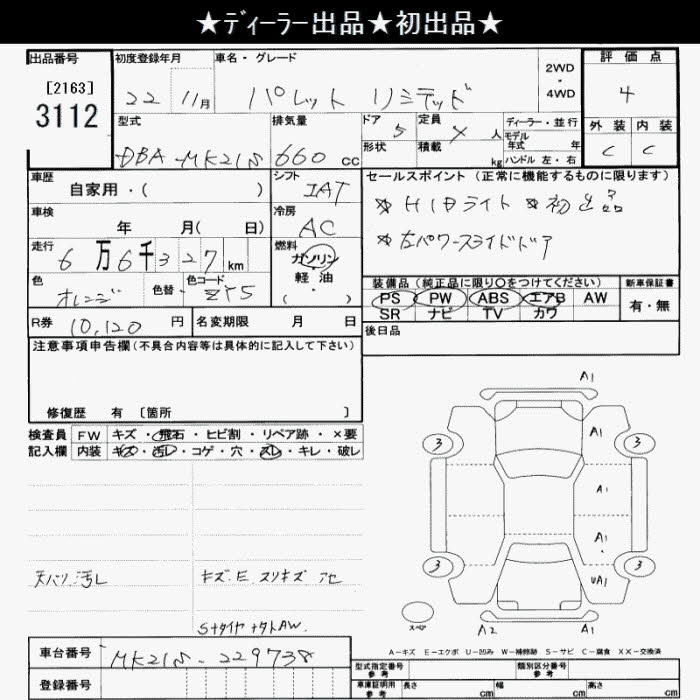 ★ディーラー出品★初出品★
出品番号 初度登録年月 車名・グレード 2WD・4WD 評価点
[2163]
3112
22 11月 パレット リミテッド 4
型式 排気量 ドア 5 定員 人 ディーラー・並行 外装 内装
DBA-MK21S 660 cc 形状 積載 kg モデル年式 年 ハンドル 左・右 C C
車歴 シフト セールスポイント (正常に機能するものに限ります)
自家用・( ) IAT ☆HIDライト ☆初出品
車検 冷房
年 月( 日) AC ☆左パワースライドドア
走行 燃料
6万6千327km ガソリン
色 色替・ 色コード 軽油 装備品 (純正品に限り○をつけてください) 新車保証書
オレンジ ZY5 ( ・ ) PS PW ABS エアB AW 有・無
SR ナビ TV カワ
R券 10,120 円 名変期限 月 日 後日品
注意事項申告欄 (不具合内容等は具体的に記入して下さい)
修復歴 有 [箇所 ]
検査員 FW キズ・飛石・ヒビ割・リペア跡・×要
記入欄 内装 キズ・汚レ・コゲ・穴・スレ・キレ・破レ
A1
A1
3 3
A1
A1
3 3
UA1
スペア
A2 A1
天バリ汚レ キズ.E スリキズ アセ
SタイヤナタトAW.
A-キズ E-エクボ U-凹み W-補修跡 S-サビ C-腐食 XX-交換済
車台番号 MK21S-229738
型式指定番号 参考 類別区分番号 参考
登録番号 車庫証明用 参考 長さ cm 幅 cm 高さ cm